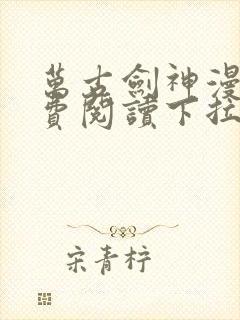 萬古劍神漫
費閱讀下拉
宋青梓